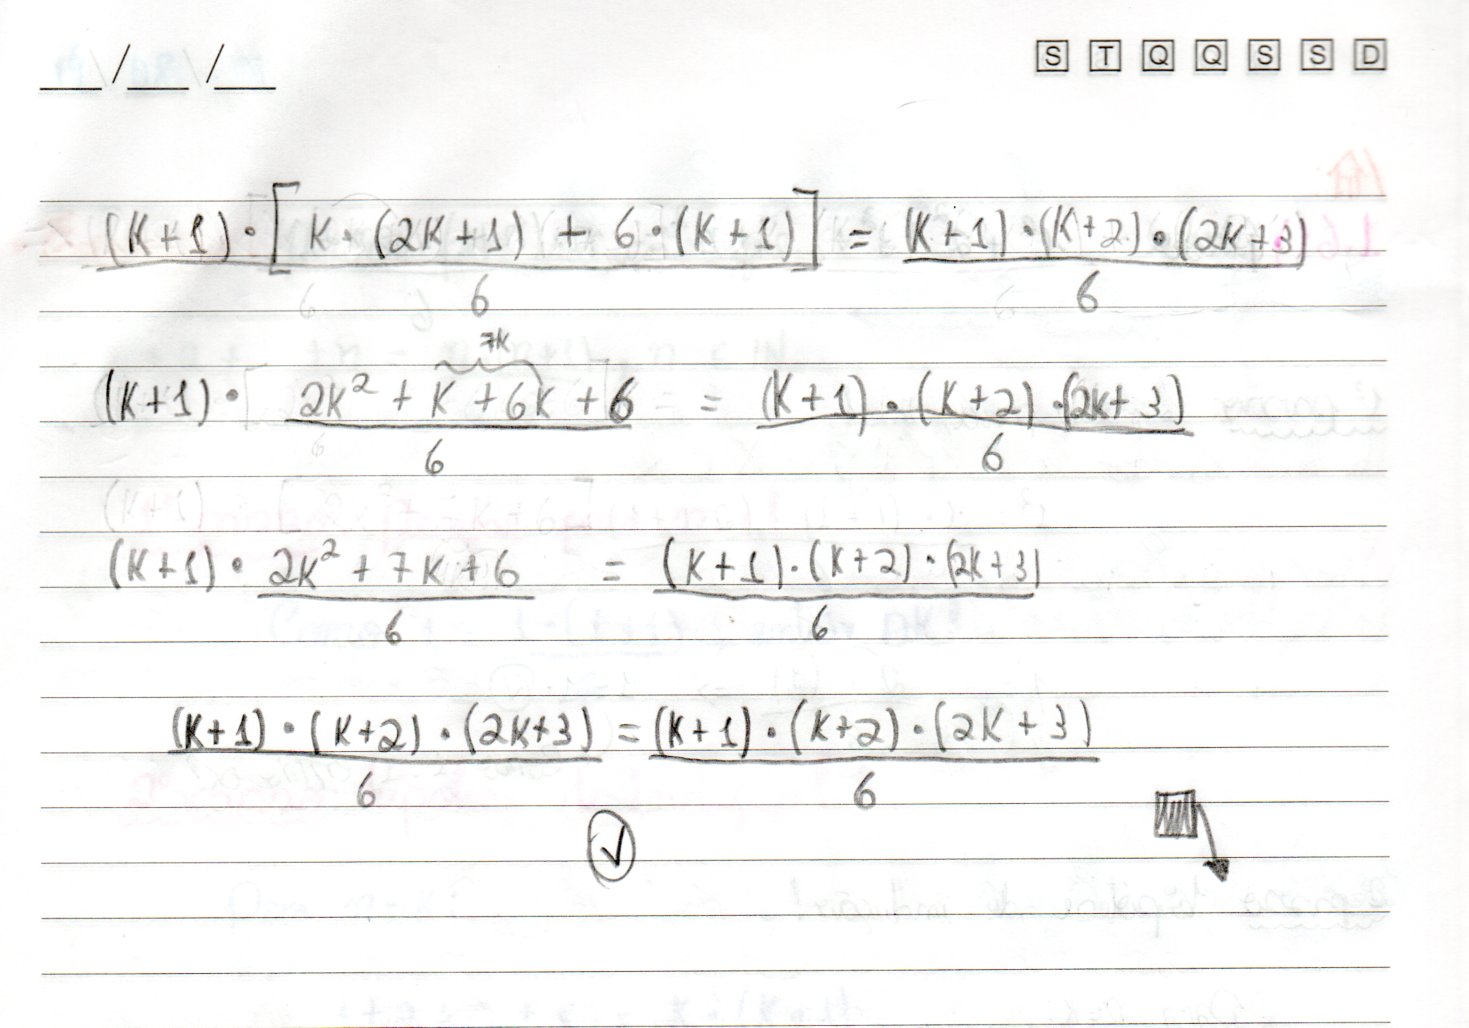 __/__/__ S T Q Q S S D
(K+1)·[K·(2K+1)+6·(K+1)]/6 = (K+1)·(K+2)·(2K+3)/6
7K
(K+1)·2K²+K+6K+6/6 = (K+1)·(K+2)·(2K+3)/6
(K+1)·2K²+7K+6/6 = (K+1)·(K+2)·(2K+3)/6
(K+1)·(K+2)·(2K+3)/6 = (K+1)·(K+2)·(2K+3)/6